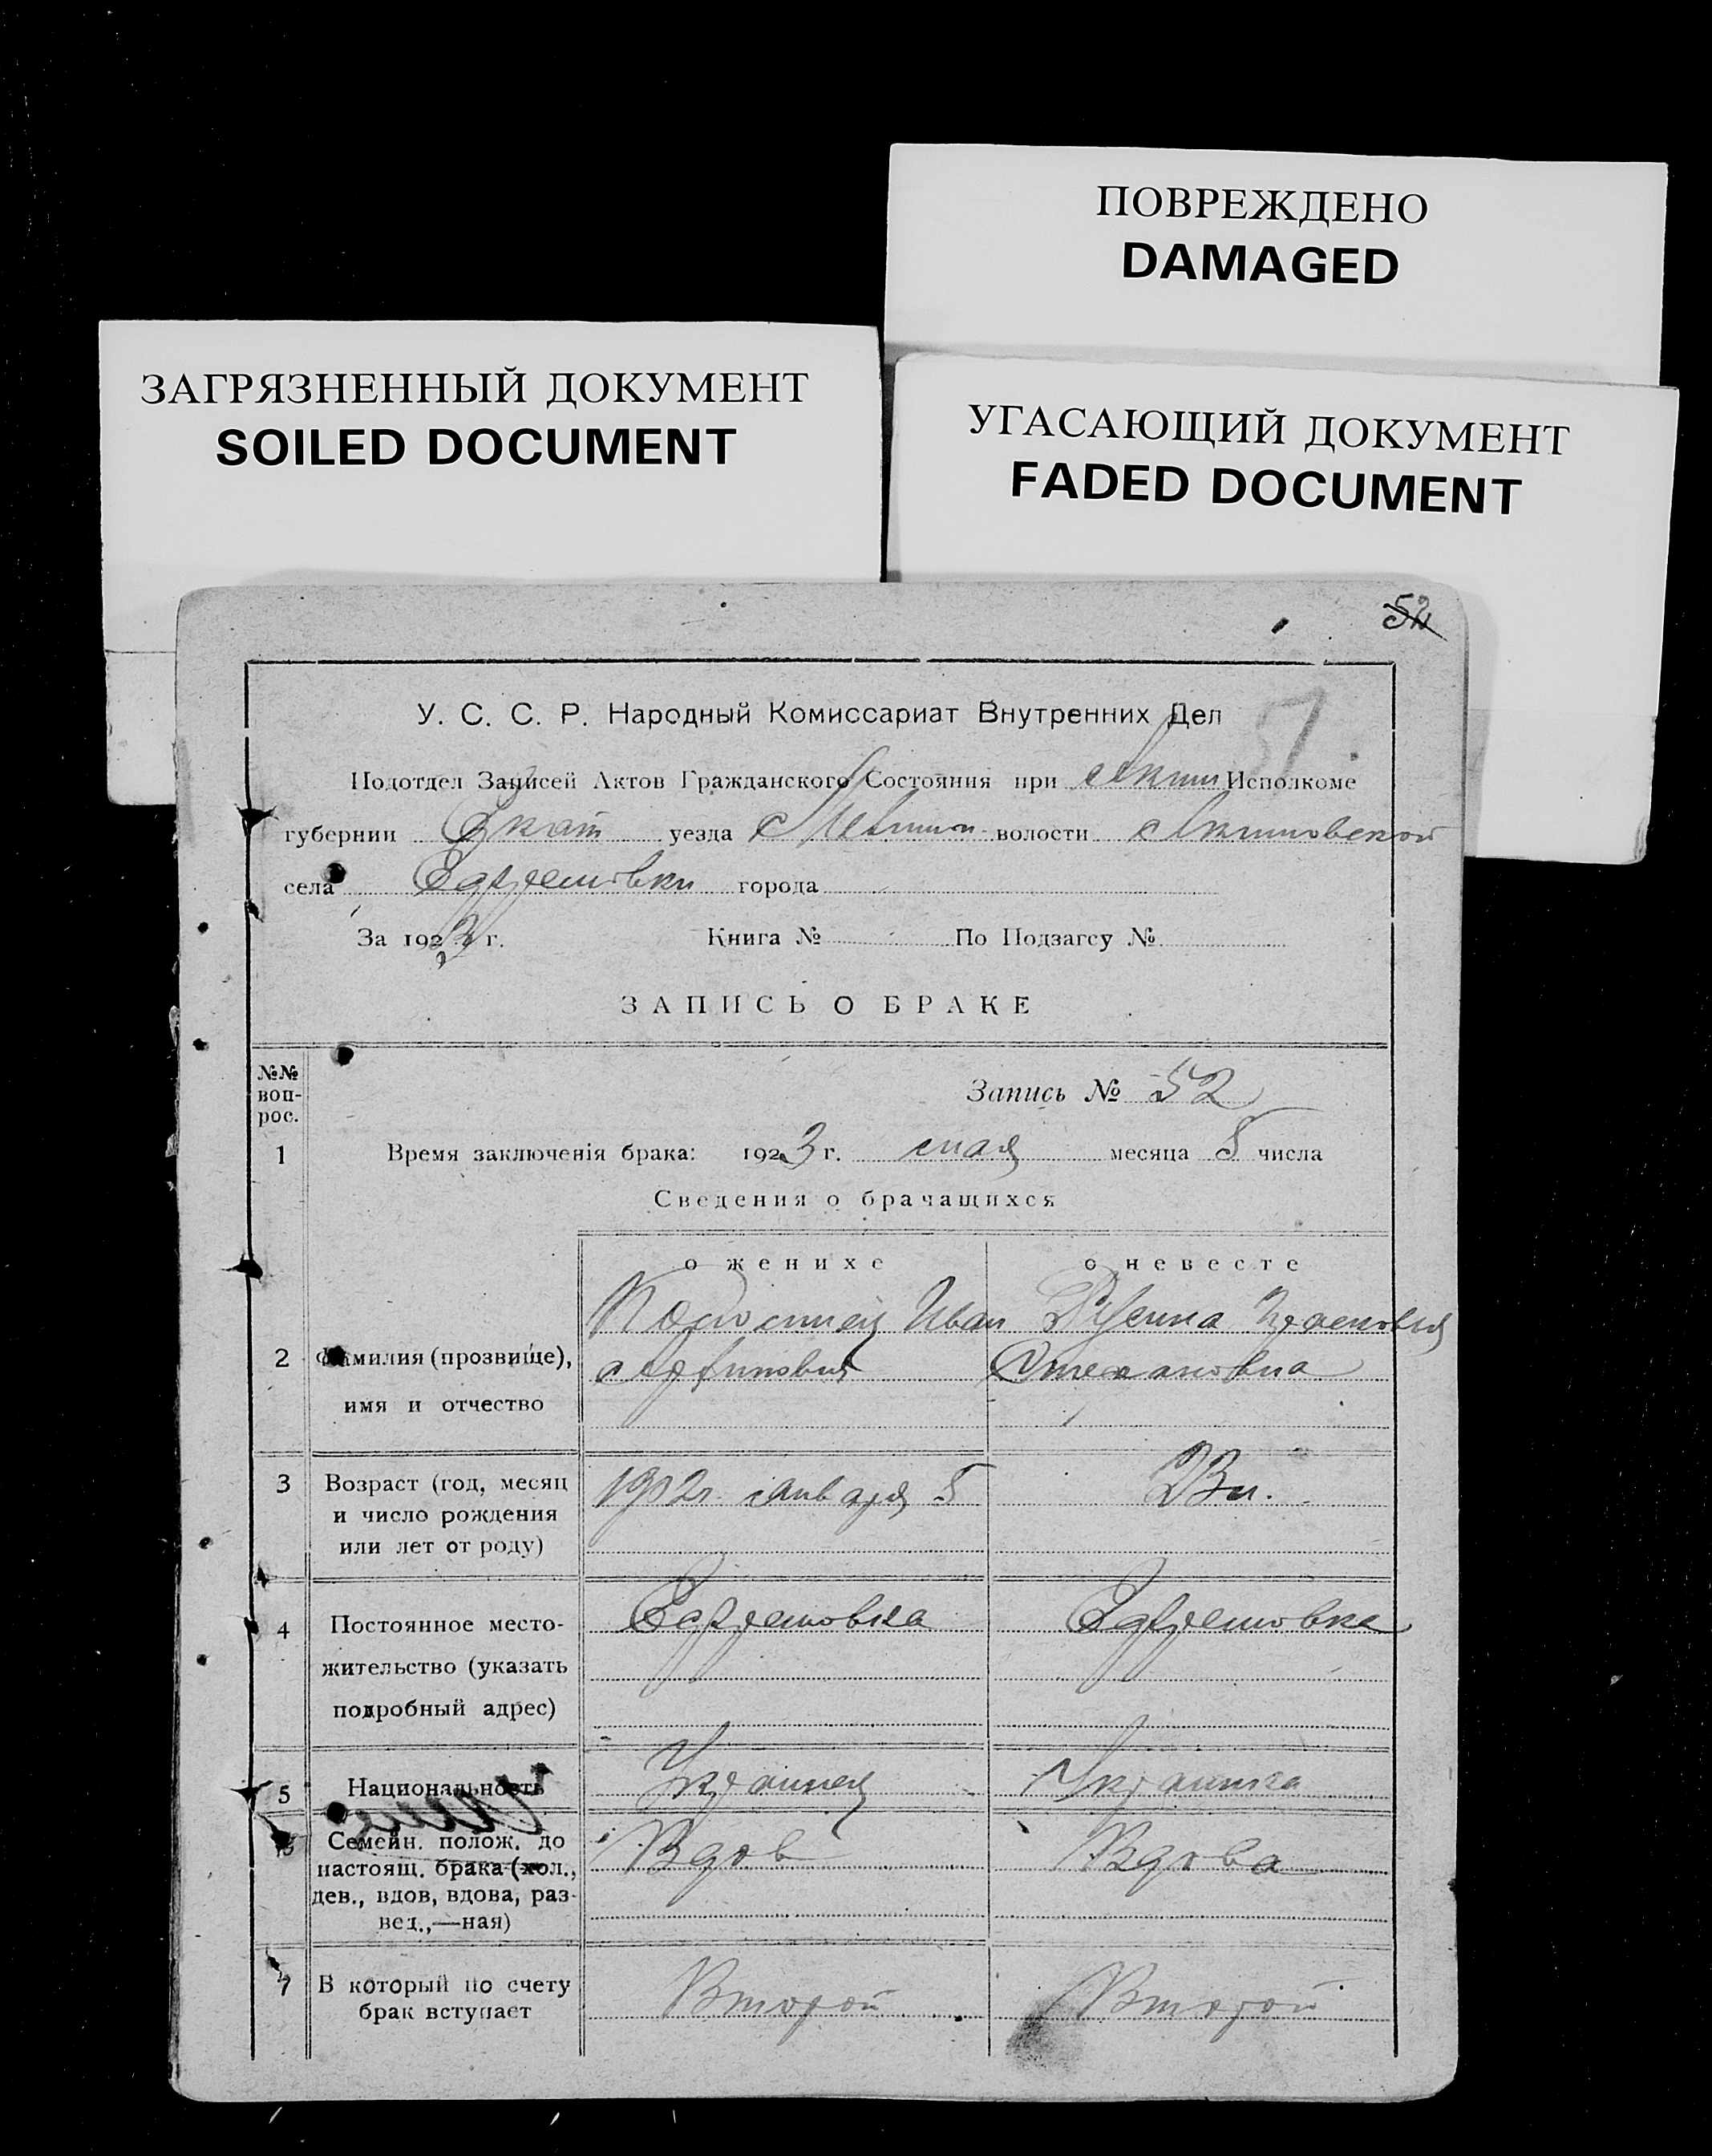 ПОВРЕЖДЕНО
DAMAGED
ЗАГРЯЗНЕННЫЙ ДОКУМЕНТ
SOILED DOCUMENT
УГАСАЮЩИЙ ДОКУМЕНТ
FADED DOCUMENT
52
51
У. С. С. Р. Народный Комиссариат Внутренних Дел
Подотдел Записей Актов Гражданского Состояния при Аким Исполкоме
губернии Екат уезда волости Акимовской
села Ефремовки города
За 1923 г. Книга № По Подзагсу №
ЗАПИСЬ О БРАКЕ
№№ воп-рос.
Запись № 52
1 Время заключенія брака: 1923 г. мая месяца 5 числа
Сведения о брачащихся
о женихе о невесте
Иван
2 Фамилия (прозвище), Степановна
имя и отчество
3 Возраст (год, месяц 1902 г. января 5 23 л.
и число рождения
или лет от роду)
4 Постоянное место- Ефремовка Ефремовка
жительство (указать
подробный адрес)
5 Национальность Украинец Украинка
6 Семейн. полож. до Вдов Вдова
настоящ. брака (хол.,
дев., вдов, вдова, раз-
вед.,—ная)
7 В который по счету Второй Второй
брак вступает